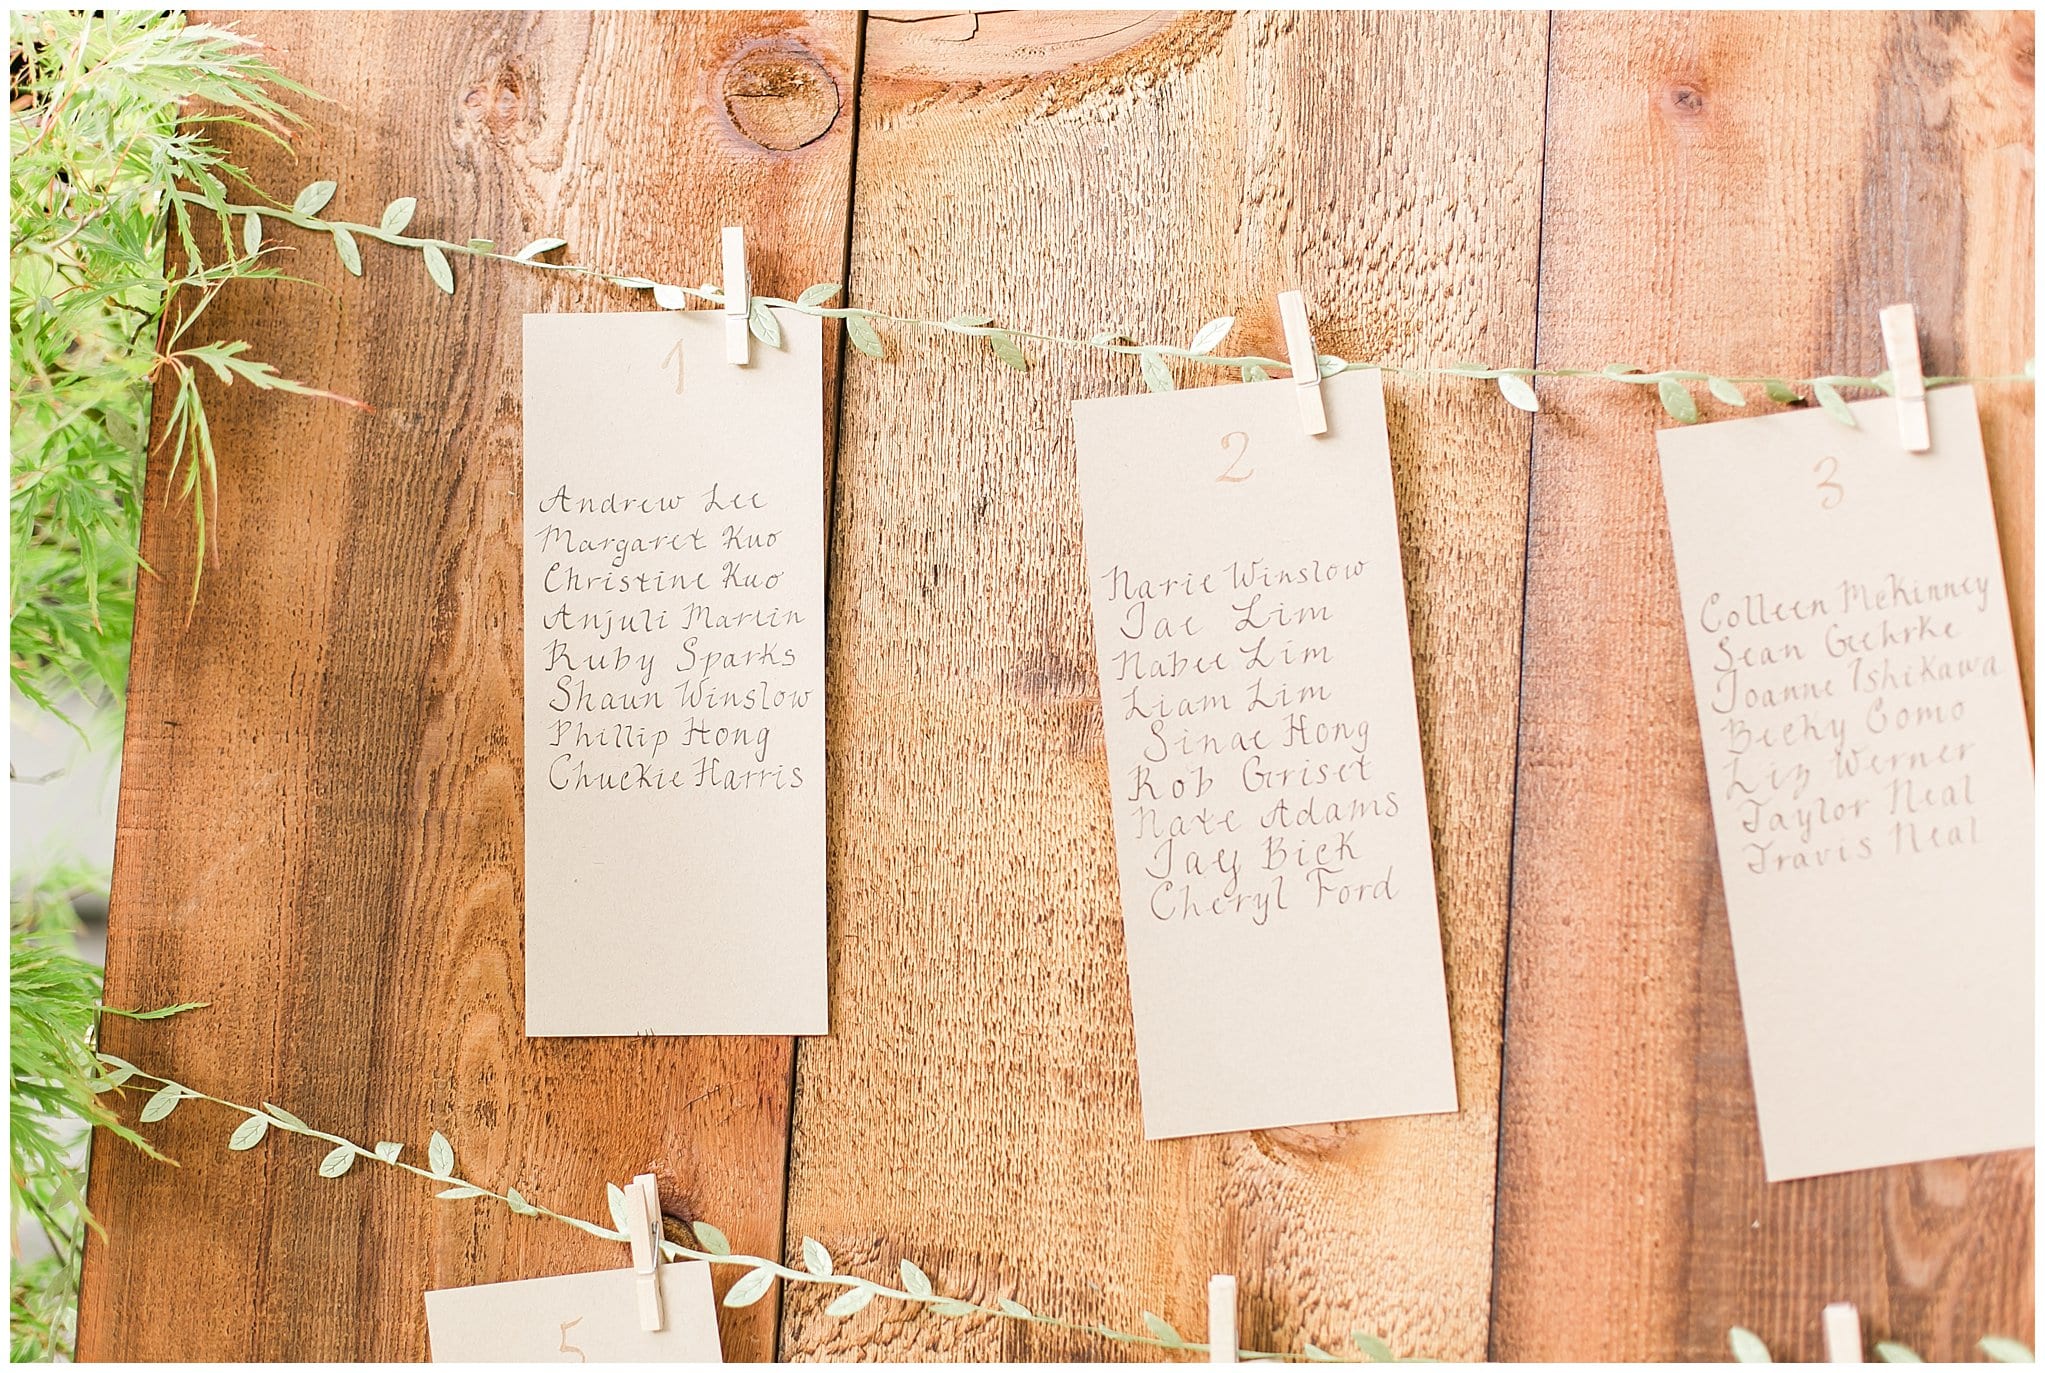 1
Andrew Lee
Margaret Kuo
Christine Kuo
Anjuli Martin
Ruby Sparks
Shaun Winslow
Phillip Hong
Chuckie Harris
2
Narie Winslow
Jae Lim
Nabee Lim
Liam Lim
Sinae Hong
Rob Griset
Nate Adams
Jay Bick
Cheryl Ford
3
Colleen McKinney
Sean Gehrke
Joanne Ishikawa
Becky Como
Liz Werner
Taylor Neal
Travis Neal
5